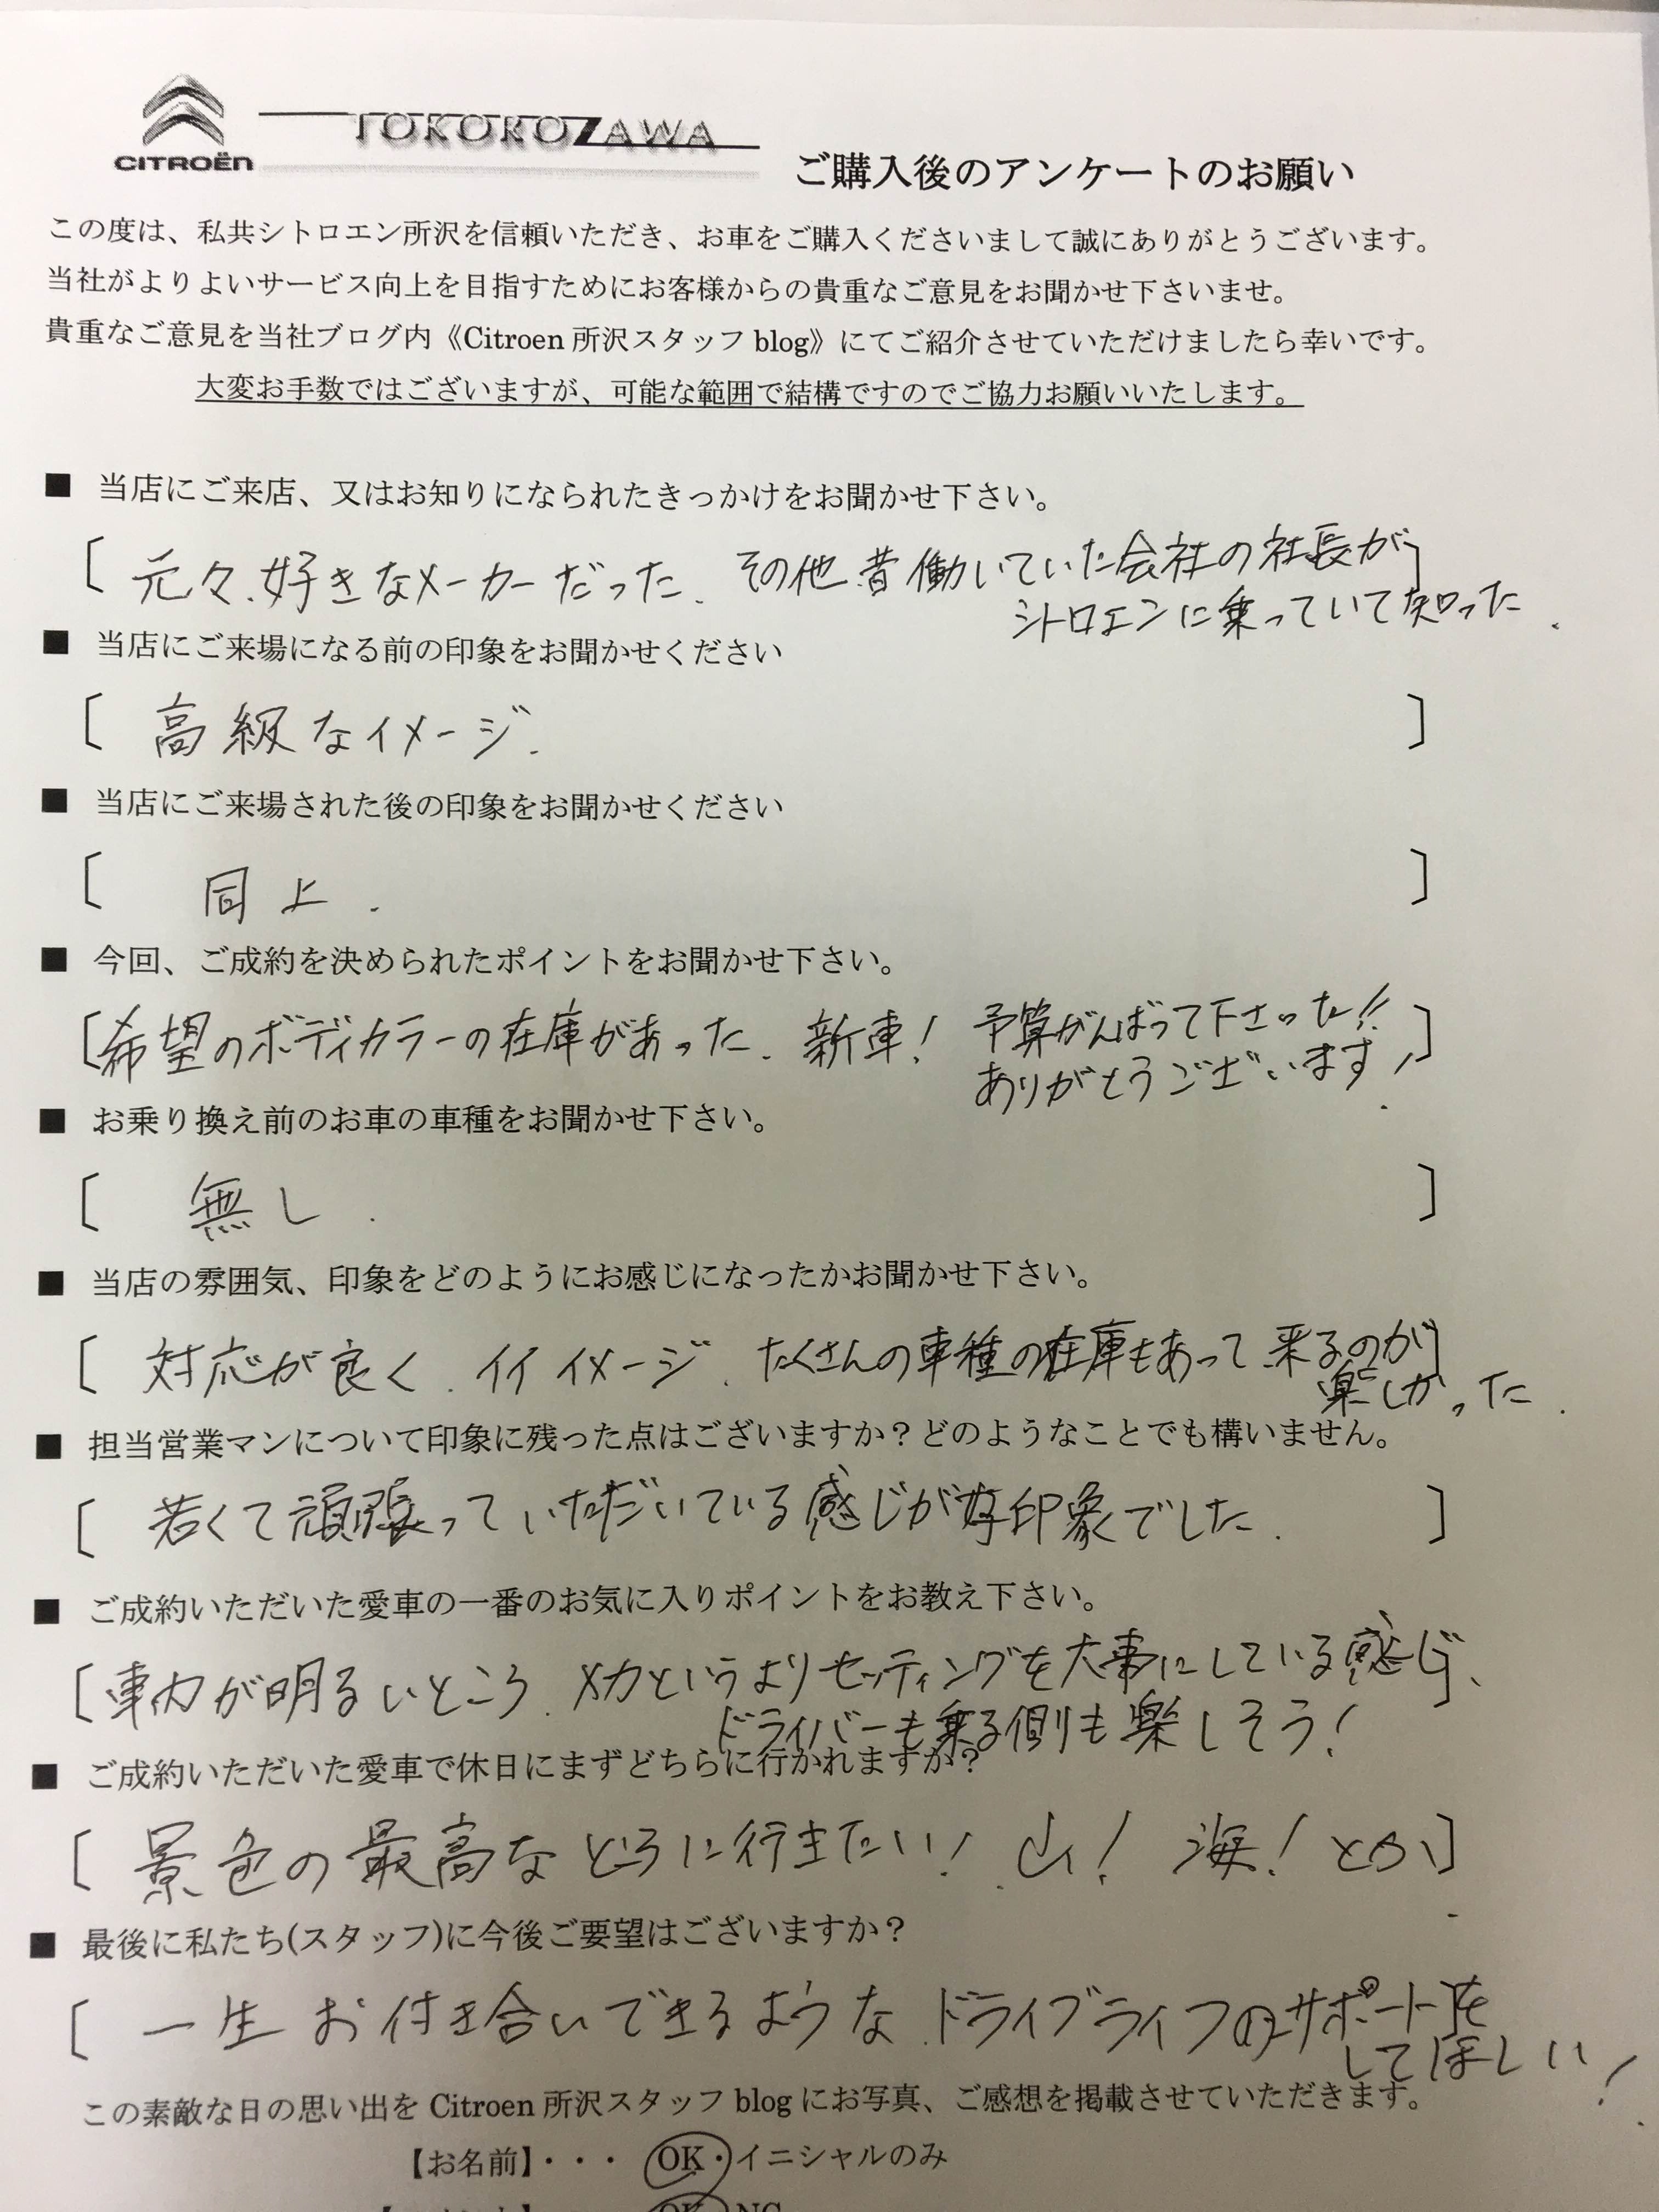 CITROËN
TOKOROZAWA
ご購入後のアンケートのお願い
この度は、私共シトロエン所沢を信頼いただき、お車をご購入くださいまして誠にありがとうございます。
当社がよりよいサービス向上を目指すためにお客様からの貴重なご意見をお聞かせ下さいませ。
貴重なご意見を当社ブログ内《Citroen 所沢スタッフ blog》にてご紹介させていただけましたら幸いです。
大変お手数ではございますが、可能な範囲で結構ですのでご協力お願いいたします。
■ 当店にご来店、又はお知りになられたきっかけをお聞かせ下さい。
〔 元々、好きなメーカーだった. その他昔働いていた会社の社長が 〕
シトロエンに乗っていて知った.
■ 当店にご来場になる前の印象をお聞かせください
〔 高級なイメージ. 〕
■ 当店にご来場された後の印象をお聞かせください
〔 同上. 〕
■ 今回、ご成約を決められたポイントをお聞かせ下さい。
〔 希望のボディカラーの在庫があった. 新車! 予算がんばって下さった!! 〕
ありがとうございます!
■ お乗り換え前のお車の車種をお聞かせ下さい。
〔 無し. 〕
■ 当店の雰囲気、印象をどのようにお感じになったかお聞かせ下さい。
〔 対応が良く. イイイメージ. たくさんの車種の在庫もあって来るのが 〕
楽しかった.
■ 担当営業マンについて印象に残った点はございますか？どのようなことでも構いません。
〔 若くて頑張っていただいている感じが好印象でした. 〕
■ ご成約いただいた愛車の一番のお気に入りポイントをお教え下さい。
〔 車内が明るいところ. メカというよりセッティングを大事にしている感じ、 〕
ドライバーも乗る側も楽しそう!
■ ご成約いただいた愛車で休日にまずどちらに行かれますか？
〔 景色の最高なところに行きたい! 山! 海! とか 〕
■ 最後に私たち(スタッフ)に今後ご要望はございますか？
〔 一生お付き合いできるような.ドライブライフのサポートを 〕
してほしい!
この素敵な日の思い出を Citroen 所沢スタッフ blog にお写真、ご感想を掲載させていただきます。
【お名前】・・・ OK・イニシャルのみ